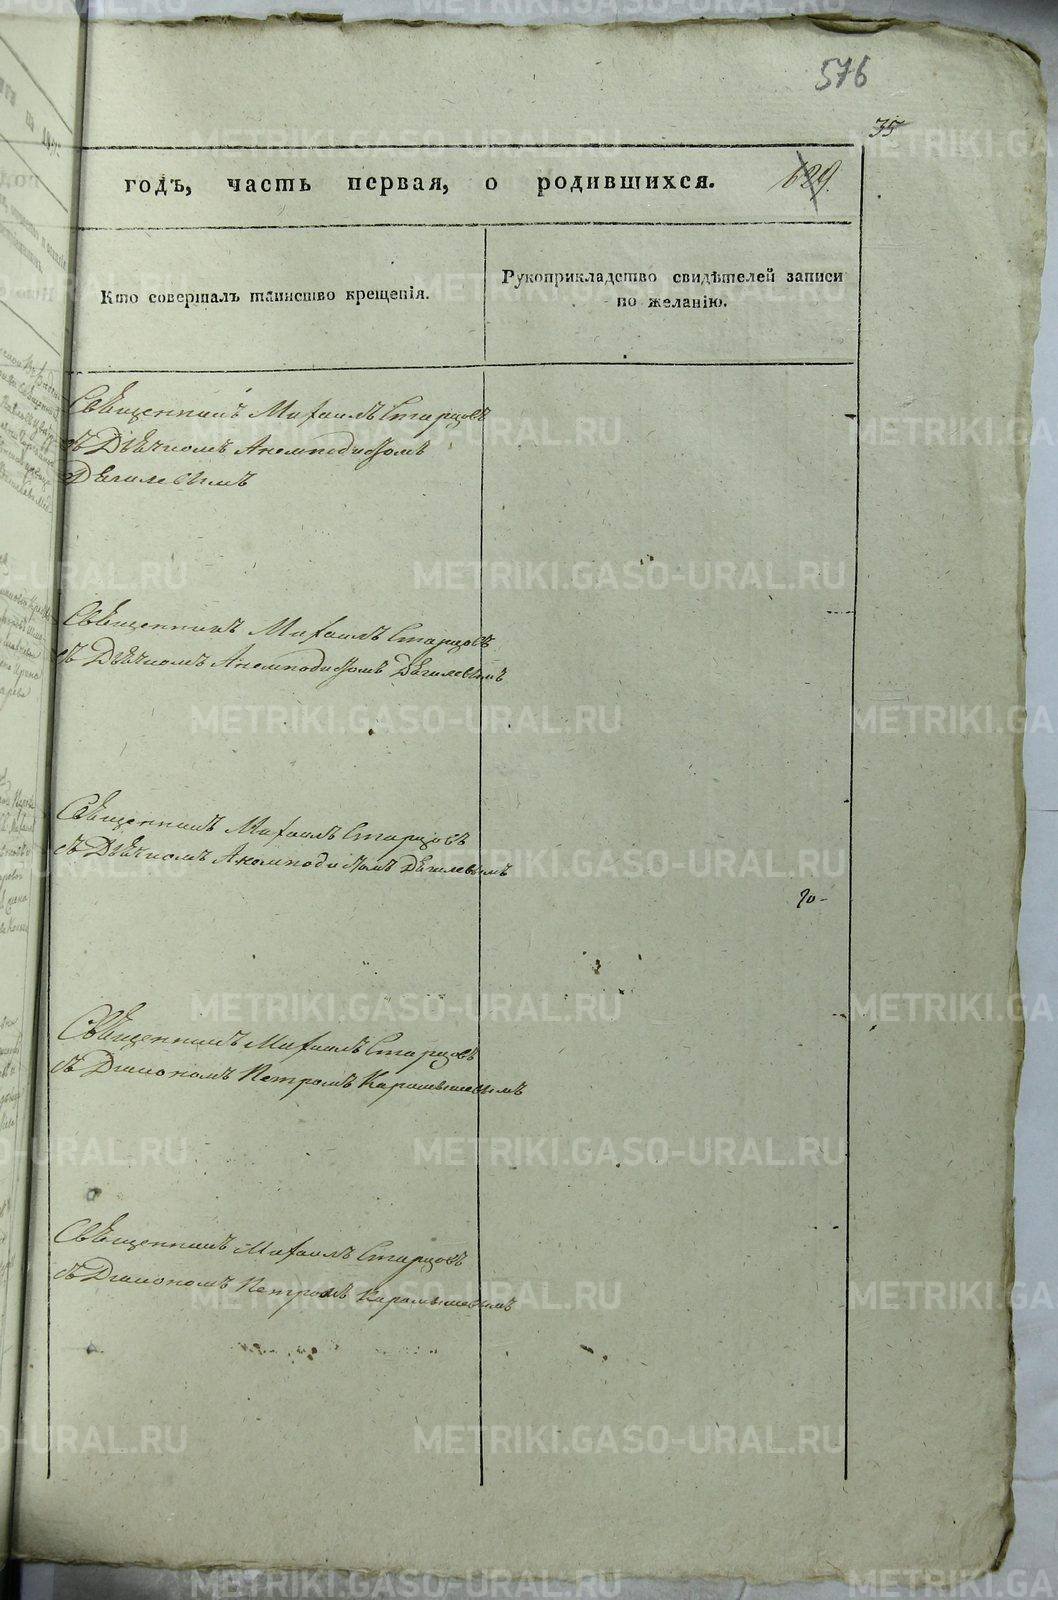 576
35
годъ, часть первая, о родившихся.
629.
Кто совершалъ таинство крещенія.
Рукоприкладство свидѣтелей записи
по желанію.
Священникъ Михаилъ Старцовъ
съ Дьячкомъ Анемподистомъ
Дягилевымъ
Священникъ Михаилъ Старцовъ
съ Дьячкомъ Анемподистомъ Дягилевымъ
Священникъ Михаилъ Старцовъ
съ Дьячкомъ Анемподистомъ Дягилевымъ
Священникъ Михаилъ Старцовъ
съ Диакономъ Петромъ Карамышевымъ
Священникъ Михаилъ Старцовъ
съ Диакономъ Петромъ Карамышевымъ
METRIKI.GASO-URAL.RU